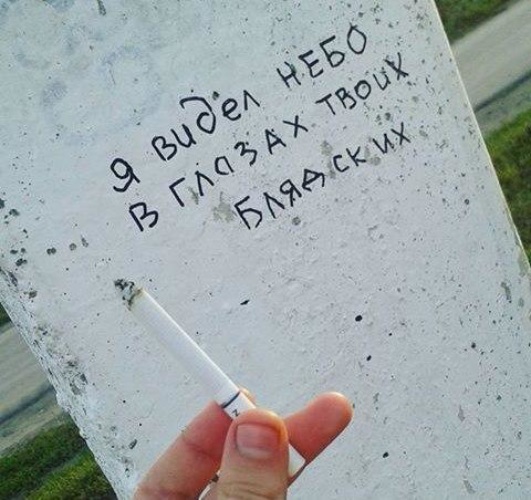 Я видел НЕБО
В ГЛАЗАХ ТВОИХ
БЛЯДСКИХ